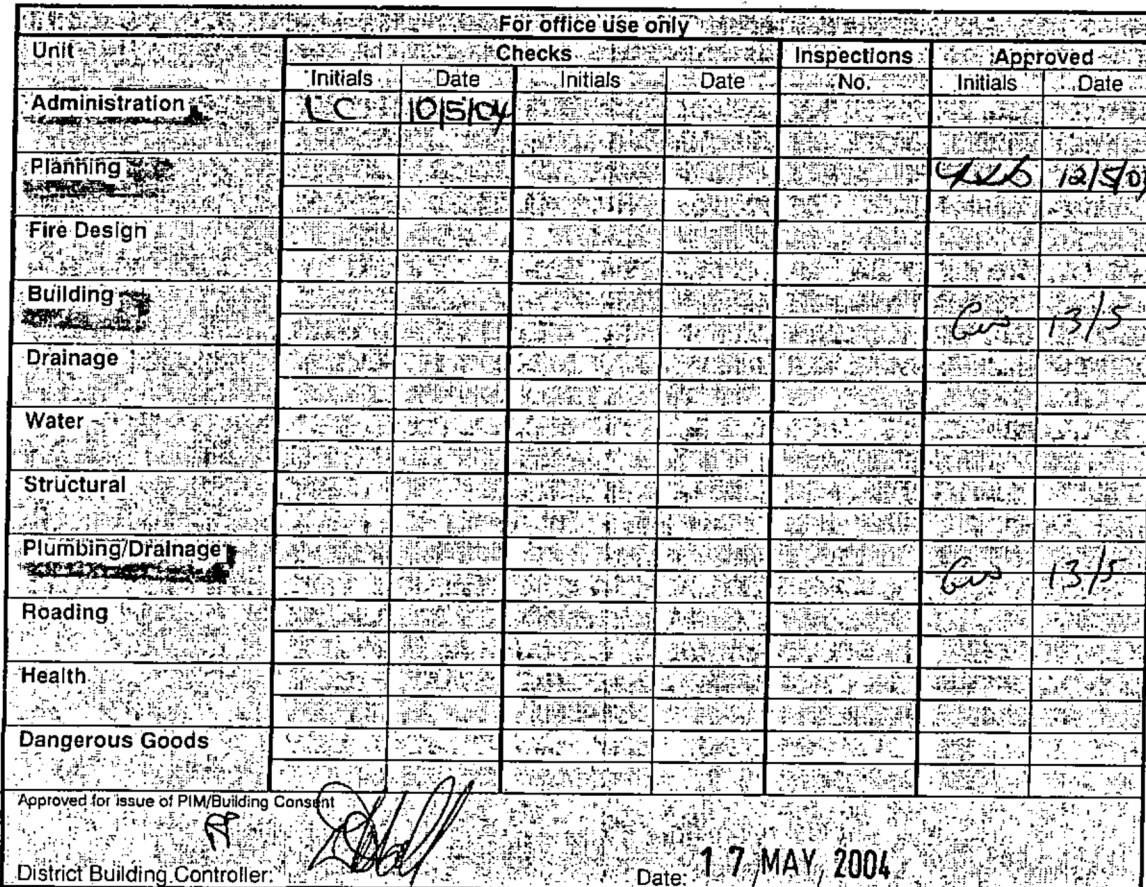 For office use only
Unit Checks Inspections Approved
Initials Date Initials Date No. Initials Date
Administration LC 10/5/04
Planning 12/5/0
Fire Design
Building 13/5
Drainage
Water
Structural
Plumbing/Drainage 13/5
Roading
Health
Dangerous Goods
Approved for issue of PIM/Building Consent
District Building Controller: Date: 17 MAY 2004